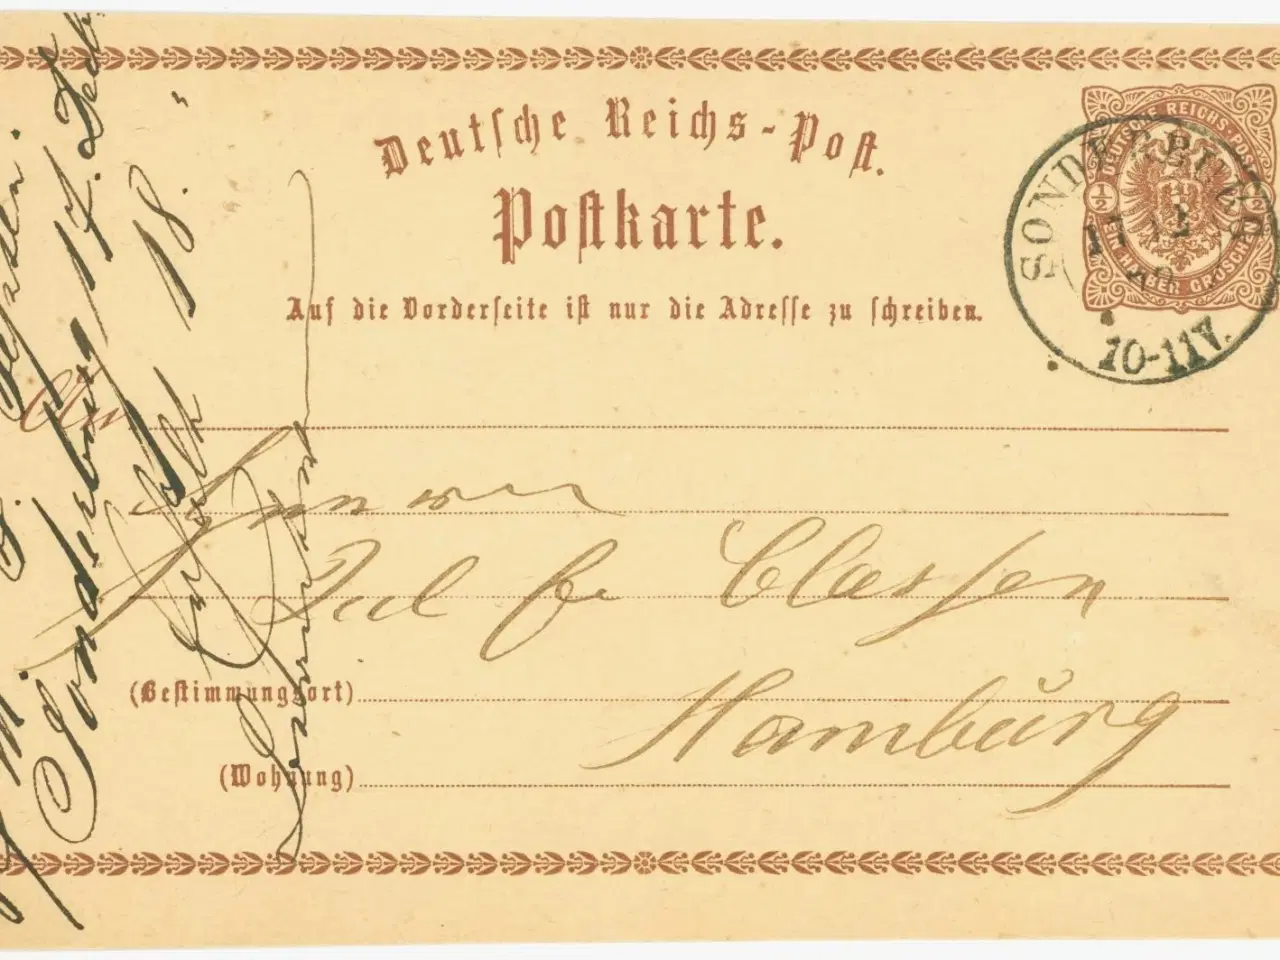 Deutsche Reichs-Post.
Postkarte.
Auf die Vorderseite ist nur die Adresse zu schreiben.
DEUTSCHE REICHS-POST
1/2
EIN HALBER GROSCHEN
SONDERBURG
17 12
10-11V.
An
Herren
Jul Classen
(Bestimmungsort)
Hamburg
(Wohnung)
Sonderburg 17.
18.